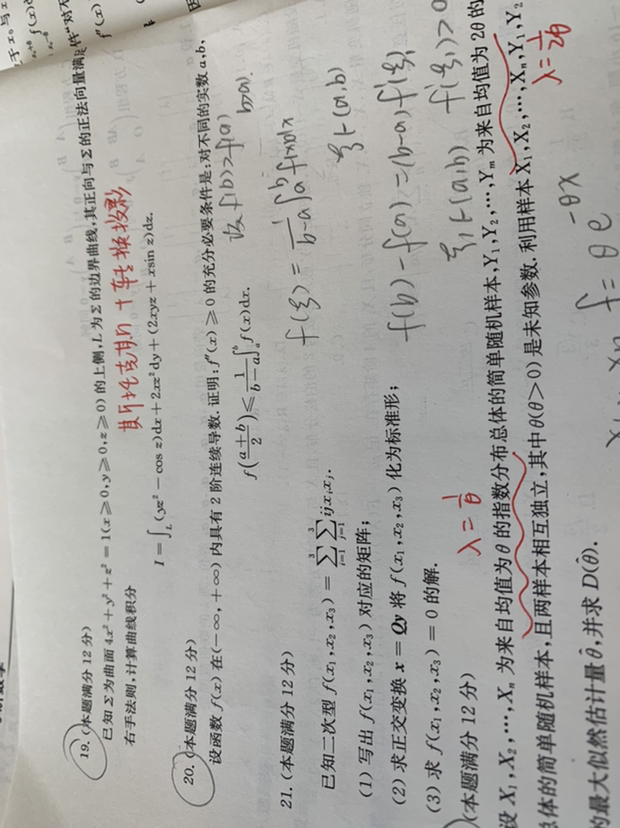 19. (本题满分 12 分)
已知 Σ 为曲面 4x²+y²+z²=1(x≥0,y≥0,z≥0)的上侧,L 为 Σ 的边界曲线,其正向与 Σ 的正法向量满足
右手法则,计算曲线积分
I=∫_L(yz²-cos z)dx+2xz²dy+(2xyz+xsin z)dz.
20. (本题满分 12 分)
设函数 f(x) 在(-∞,+∞)内具有 2 阶连续导数.证明:f″(x)≥0 的充分必要条件是:对不同的实数 a,b,
f((a+b)/2)≤1/(b-a)∫_a^b f(x)dx.
设 f(b)>f(a)
b>a).
f(ξ)=1/(b-a)∫_a^b f(x)dx
ξ∈(a,b)
f(b)-f(a)=(b-a)f'(ξ₁)
ξ₁∈(a,b) f'(ξ₁)>0
21. (本题满分 12 分)
已知二次型 f(x₁,x₂,x₃)=∑_{i=1}^{3}∑_{j=1}^{3}ijx_ix_j.
(1) 写出 f(x₁,x₂,x₃)对应的矩阵;
(2) 求正交变换 x=Qy 将 f(x₁,x₂,x₃)化为标准形;
(3) 求 f(x₁,x₂,x₃)=0 的解.
(本题满分 12 分)
λ=1/θ
设 X₁,X₂,…,Xₙ 为来自均值为 θ 的指数分布总体的简单随机样本,Y₁,Y₂,…,Yₘ 为来自均值为 2θ 的
总体的简单随机样本,且两样本相互独立,其中 θ(θ>0)是未知参数.利用样本 X₁,X₂,…,Xₙ,Y₁,Y₂
λ=1/2θ
的最大似然估计量 θ̂,并求 D(θ̂).
f=θe^{-θx}